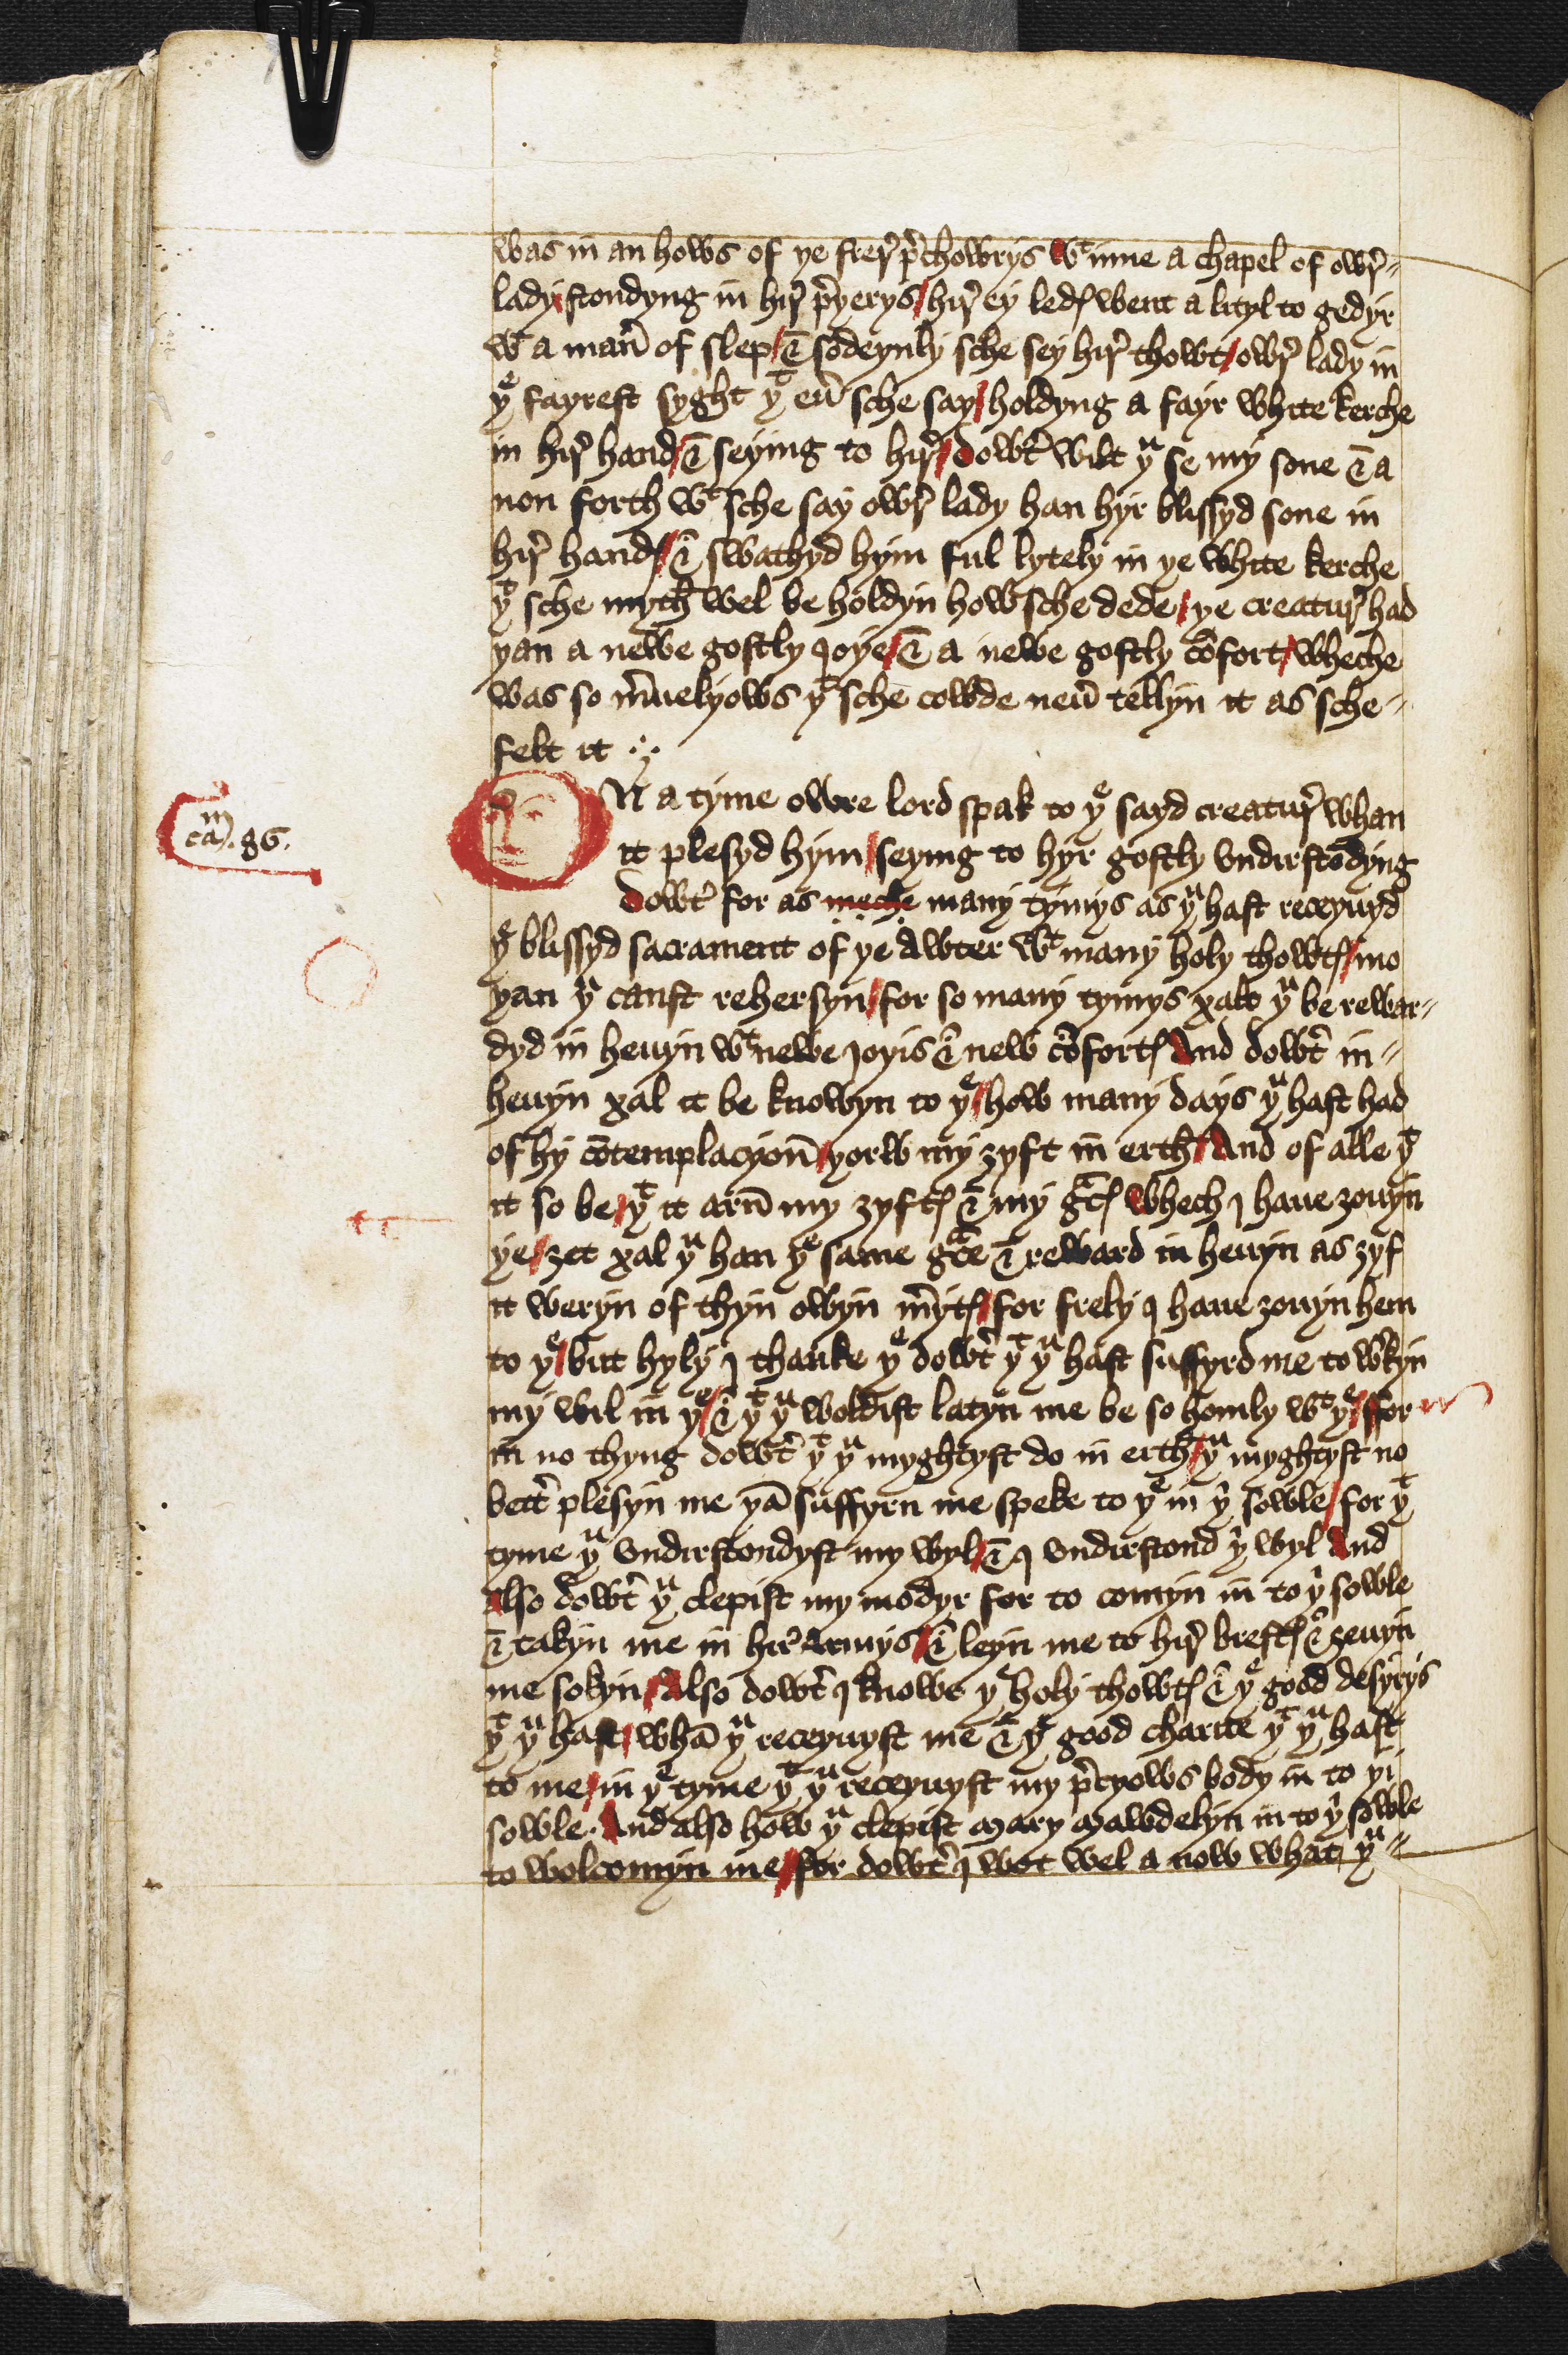 was in an hows of ye frerꝭ p̄chowrys wᵗinne a chapel of owr̄ 〃
lady / stondyng in hir̄ p̄yerys / hir̄ ey ledꝭ went a lityl to gedyr
wᵗ a man̄ of slep / & sodeynly sche sey hir̄ thowt / owr̄ lady in
yᵉ fayrest syght yᵗ eū sche say / holdyng a fayr white kerche
in hir̄ hand / & seying to hir̄ / dowt̄ wilt yᵘ se my sone & a
non forth wᵗ sche say owr̄ lady han hyr blissyd sone in
hir̄ handꝭ / & swathyd hym ful lytely in ye white kerche
yᵗ sche myth wel be holdyn how sche dede / ye creatur̄ had
yan a newe gostly joye / & a newe gostly cōfort / wheche
was so m̄uelyows yᵗ sche cowde neū tellyn it as sche 〃
felt it
ca.ᵐ 86.
ON a tyme owre lord spak to yᵉ sayd creatur̄ whan
it plesyd hym / seying to hyr gostly vndirstōdyng
dowt̄ for as meche many tymys as yᵘ hast receyuyd
yᵉ blissyd sacrament of ye Awter wᵗ many holy thowtꝭ / mo
yan yᵘ canst rehersyn / for so many tymys xalt yᵘ be rewar 〃
dyd in heuyn wᵗ newe joyis & new cōfortꝭ And dowt̄ in 〃
heuyn xal it be knowyn to yᵉ / how many days yᵘ hast had
of hy cōtemplacyon̄ / yorw my ȝyft in erth / And of alle yᵗ
it so be / yᵗ it arn̄ my ȝyftꝭ & my gᵃcꝭ whech j haue ȝouyn
ye / ȝet xal yᵘ han yᵉ same gᵃce & reward in heuyn as ȝyf
it weryn of thyn owyn m̄ytꝭ / for frely j haue ȝouyn hem
to yᵉ / but hyly j thanke yᵉ dowt̄ yᵗ yᵘ hast suffyrd me to w̄kyn
my wil in yᵉ / & yᵗ yᵘ woldist latyn me be so homly wᵗ yᵉ / ffor
in no thyng dowt̄ yᵗ yᵘ myghtyst do in erth / yᵘ myghtyst no
bett̄ plesyn me yā suffyrn me speke to yᵉ in yⁱ sowle / for yᵗ
tyme yᵘ vndirstondyst my wyl / & j vndirstond yⁱ wyl And
also dowt̄ yᵘ clepist my modyr for to comyn in to yⁱ sowle
& takyn me in hir̄ armys / & leyn me to hir̄ brestꝭ & ȝeuyn
me sokyn / Also dowt̄ j knowe yᵉ holy thowtꝭ & yᵉ good desyrys
yᵗ yᵘ hast / whā yᵘ receyuyst me & yᵉ good charite yᵗ yᵘ hast
to me / in yᵉ tyme yᵗ yᵘ receyuyst my p̄cyows body in to yi
sowle. And also how yᵘ clepist Mary Mawdelyn in to yⁱ sowle
to wolcomyn me / for dowt̄ j wot wel a now what yᵘ 〃